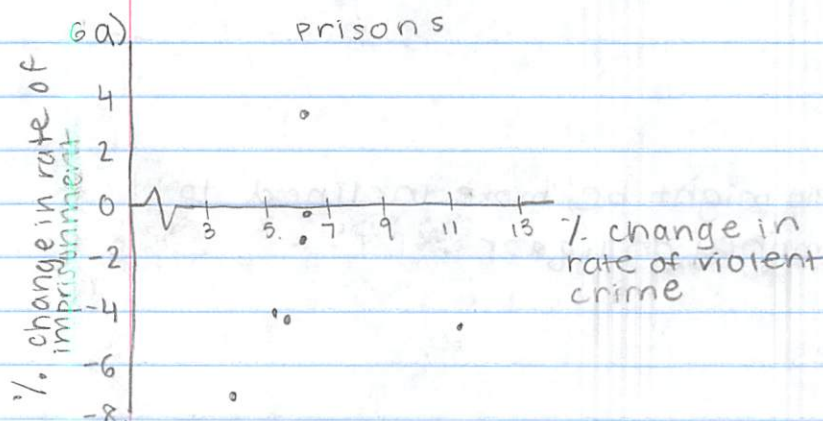 6a) prisons
% change in rate of
imprisonment
4
2
0
-2
-4
-6
-8
3 5 7 9 11 13
% change in
rate of violent
crime